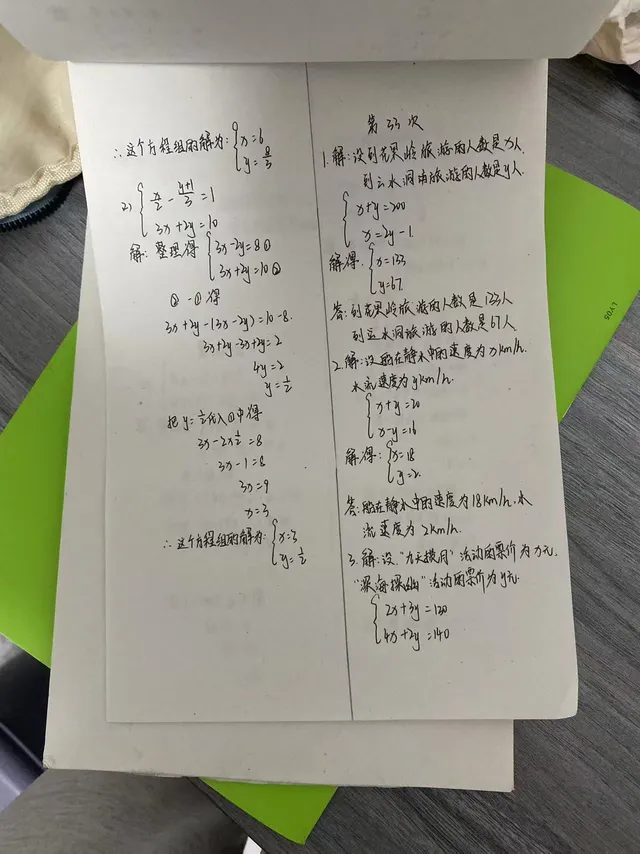 ∴这个方程组的解为:{x=6
y=8/3
2) {x/2 - (y+1)/3 = 1
3x+2y=10
解:整理得{3x-2y=8①
3x+2y=10②
②-①得
3x+2y-(3x-2y)=10-8.
3x+2y-3x+2y=2
4y=2
y=1/2
把y=1/2代入①中得
3x-2×1/2=8
3x-1=8
3x=9
x=3
∴这个方程组的解为:{x=3
y=1/2
第33次
1.解:设到花果岭旅游的人数是x人,
到云水洞旅游的人数是y人.
{x+y=200
x=2y-1
解得:{x=133
y=67.
答:到花果岭旅游的人数是133人
到云水洞旅游的人数是67人.
2.解:设船在静水中的速度为xkm/h.
水流速度为ykm/h.
{x+y=20
x-y=16
解得:{x=18
y=2.
答:船在静水中的速度为18km/h,水
流速度为2km/h.
3.解:设"九天揽月"活动的票价为x元,
"深海探幽"活动的票价为y元.
{2x+3y=130
4x+2y=140
LYDS